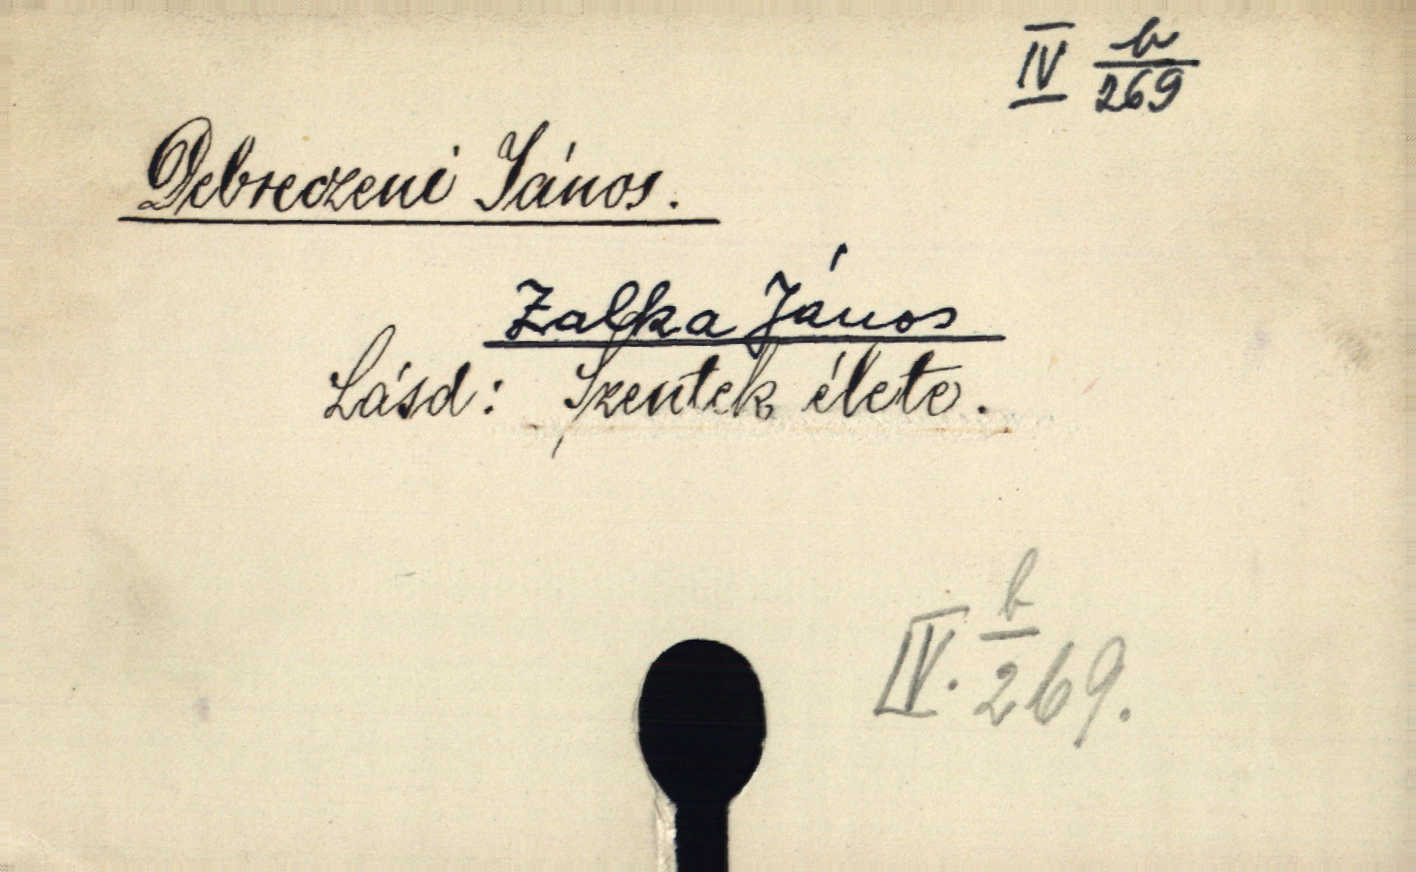 IV b/269
Debreczeni János.
Zalka János
Lásd: Szentek élete.
IV. b/269.